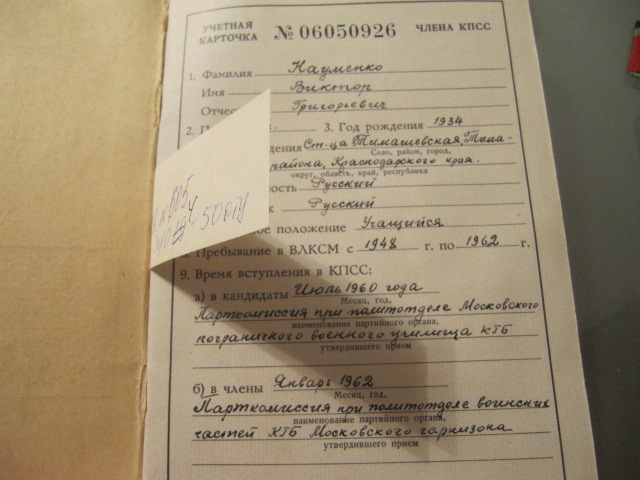 УЧЕТНАЯ КАРТОЧКА № 06050926 ЧЛЕНА КПСС
1. Фамилия Науменко
Имя Виктор
Отчес Григорьевич
2. П 3. Год рождения 1934
дения Ст-ца Тимашевская, Тима-
Село, район, город,
района, Краснодарского края.
округ, область, край, республика
ность Русский
к Русский
ое положение Учащийся
Пребывание в ВЛКСМ с 1948 г. по 1962 г.
9. Время вступления в КПСС:
а) в кандидаты Июль 1960 года
Месяц, год,
Парткомиссия при политотделе Московского
наименование партийного органа,
пограничного военного училища КГБ
утвердившего прием
б) в члены Январь 1962
Месяц, год,
Парткомиссия при политотделе воинских
наименование партийного органа,
частей КГБ Московского гарнизона
утвердившего прием